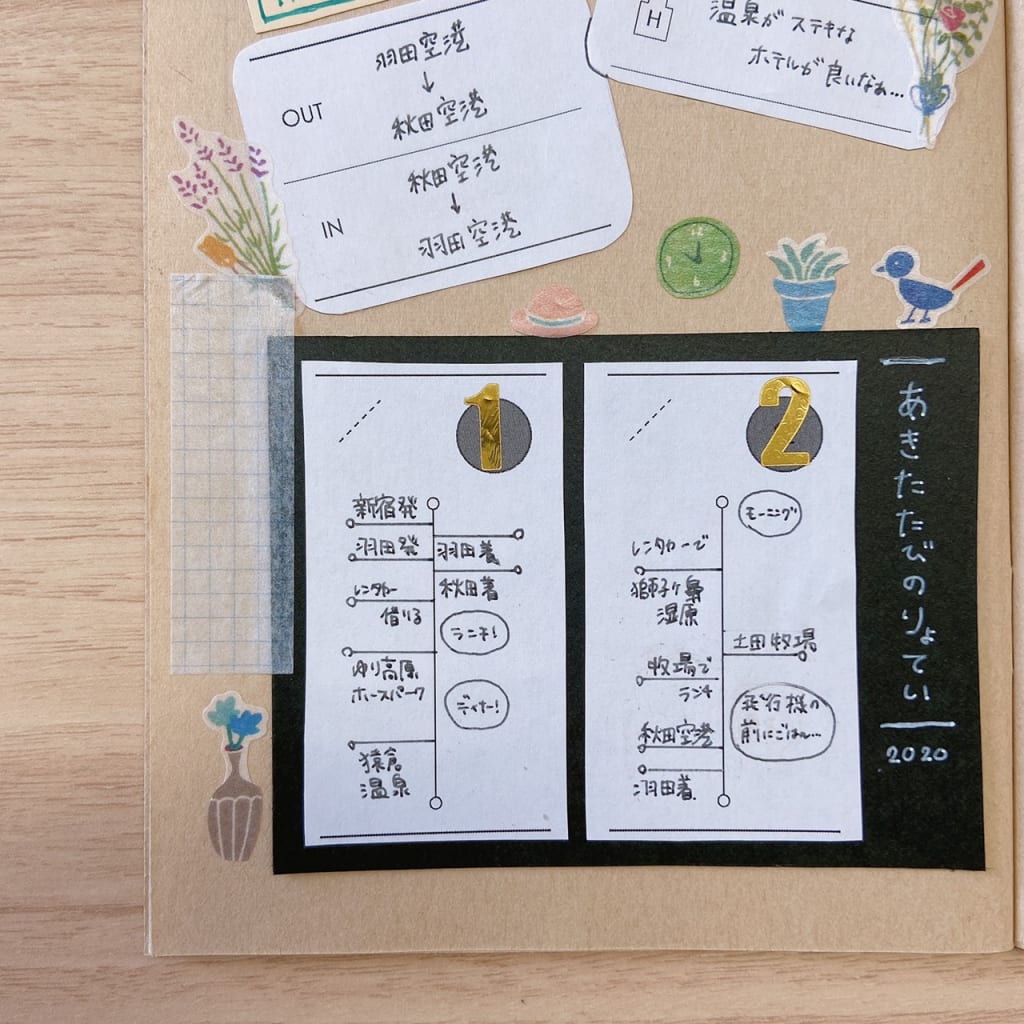 H
温泉がステキな
ホテルが良いなぁ...
OUT
羽田空港
↓
秋田空港
IN
秋田空港
↓
羽田空港
1
新宿発
羽田着
羽田発
秋田着
レンタカー
借りる
ランチ!
ゆり高原
ホースパーク
ディナー!
猿倉
温泉
2
モーニング
レンタカーで
獅子ヶ鼻
湿原
土田牧場
牧場で
ランチ
飛行機の
前にごはん...
秋田空港
羽田着
あきたたびのりょてい
2020